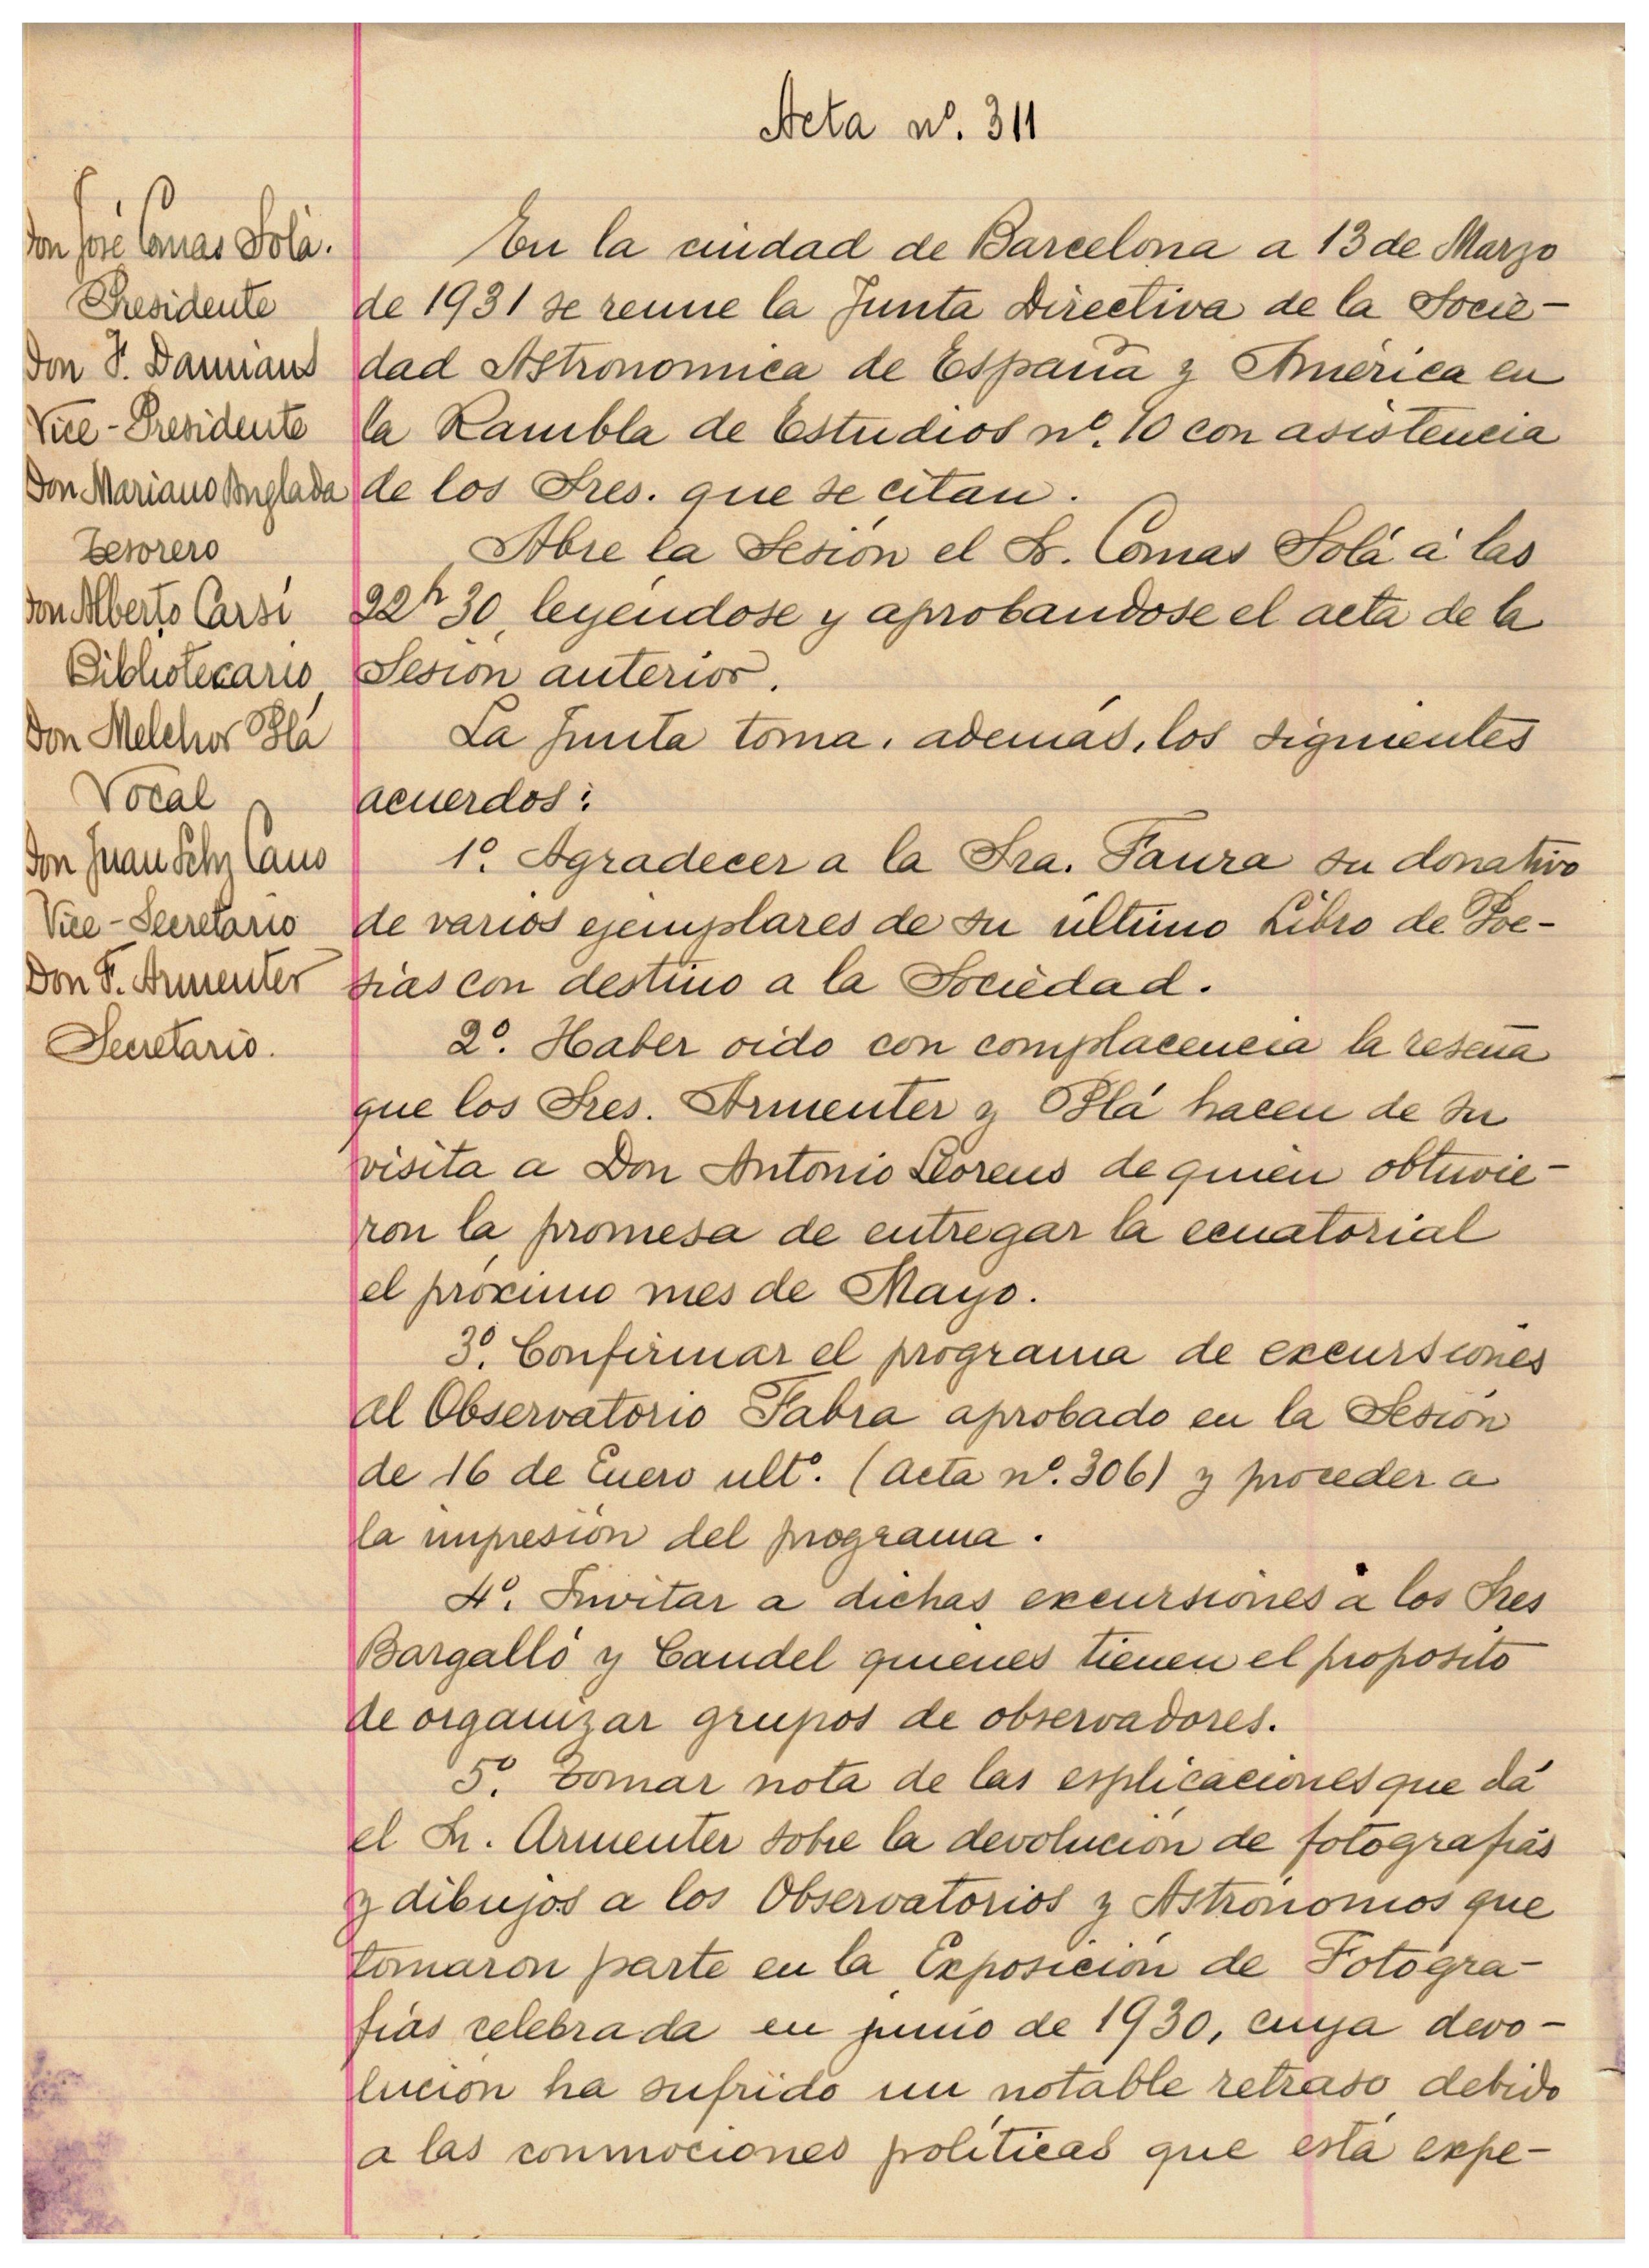 Acta nº. 311
Don José Comas Solá.
Presidente
Don F. Damians
Vice-Presidente
Don Mariano Anglada
Tesorero
Don Alberto Carsí
Bibliotecario
Don Melchor Plá
Vocal
Don Juan Schz Cano
Vice-Secretario
Don F. Armenter
Secretario.
En la ciudad de Barcelona a 13 de Marzo
de 1931 se reune la Junta Directiva de la Socie-
dad Astronomica de España y América en
la Rambla de Estudios nº. 10 con asistencia
de los Sres. que se citan.
Abre la Sesión el Sr. Comas Solá á las
22h 30, leyéndose y aprobandose el acta de la
Sesión anterior.
La Junta toma, además, los siguientes
acuerdos:
1º. Agradecer a la Sra. Faura su donativo
de varios ejemplares de su último Libro de Poe-
sías con destino a la Sociedad.
2º. Haber oido con complacencia la reseña
que los Sres. Armenter y Plá hacen de su
visita a Don Antonio Llorens de quien obtuvie-
ron la promesa de entregar la ecuatorial
el próximo mes de Mayo.
3º. Confirmar el programa de excursiones
al Observatorio Fabra aprobado en la Sesión
de 16 de Enero ultº. (Acta nº. 306) y proceder a
la impresión del programa.
4º. Invitar a dichas excursiones á los Sres
Bargalló y Candel quienes tienen el proposito
de organizar grupos de observadores.
5º. Tomar nota de las esplicaciones que dá
el Sr. Armenter sobre la devolución de fotografías
y dibujos a los Observatorios y Astrónomos que
tomaron parte en la Exposición de Fotogra-
fías celebrada en junio de 1930, cuya devo-
lución ha sufrido un notable retraso debido
a las conmociones políticas que está expe-